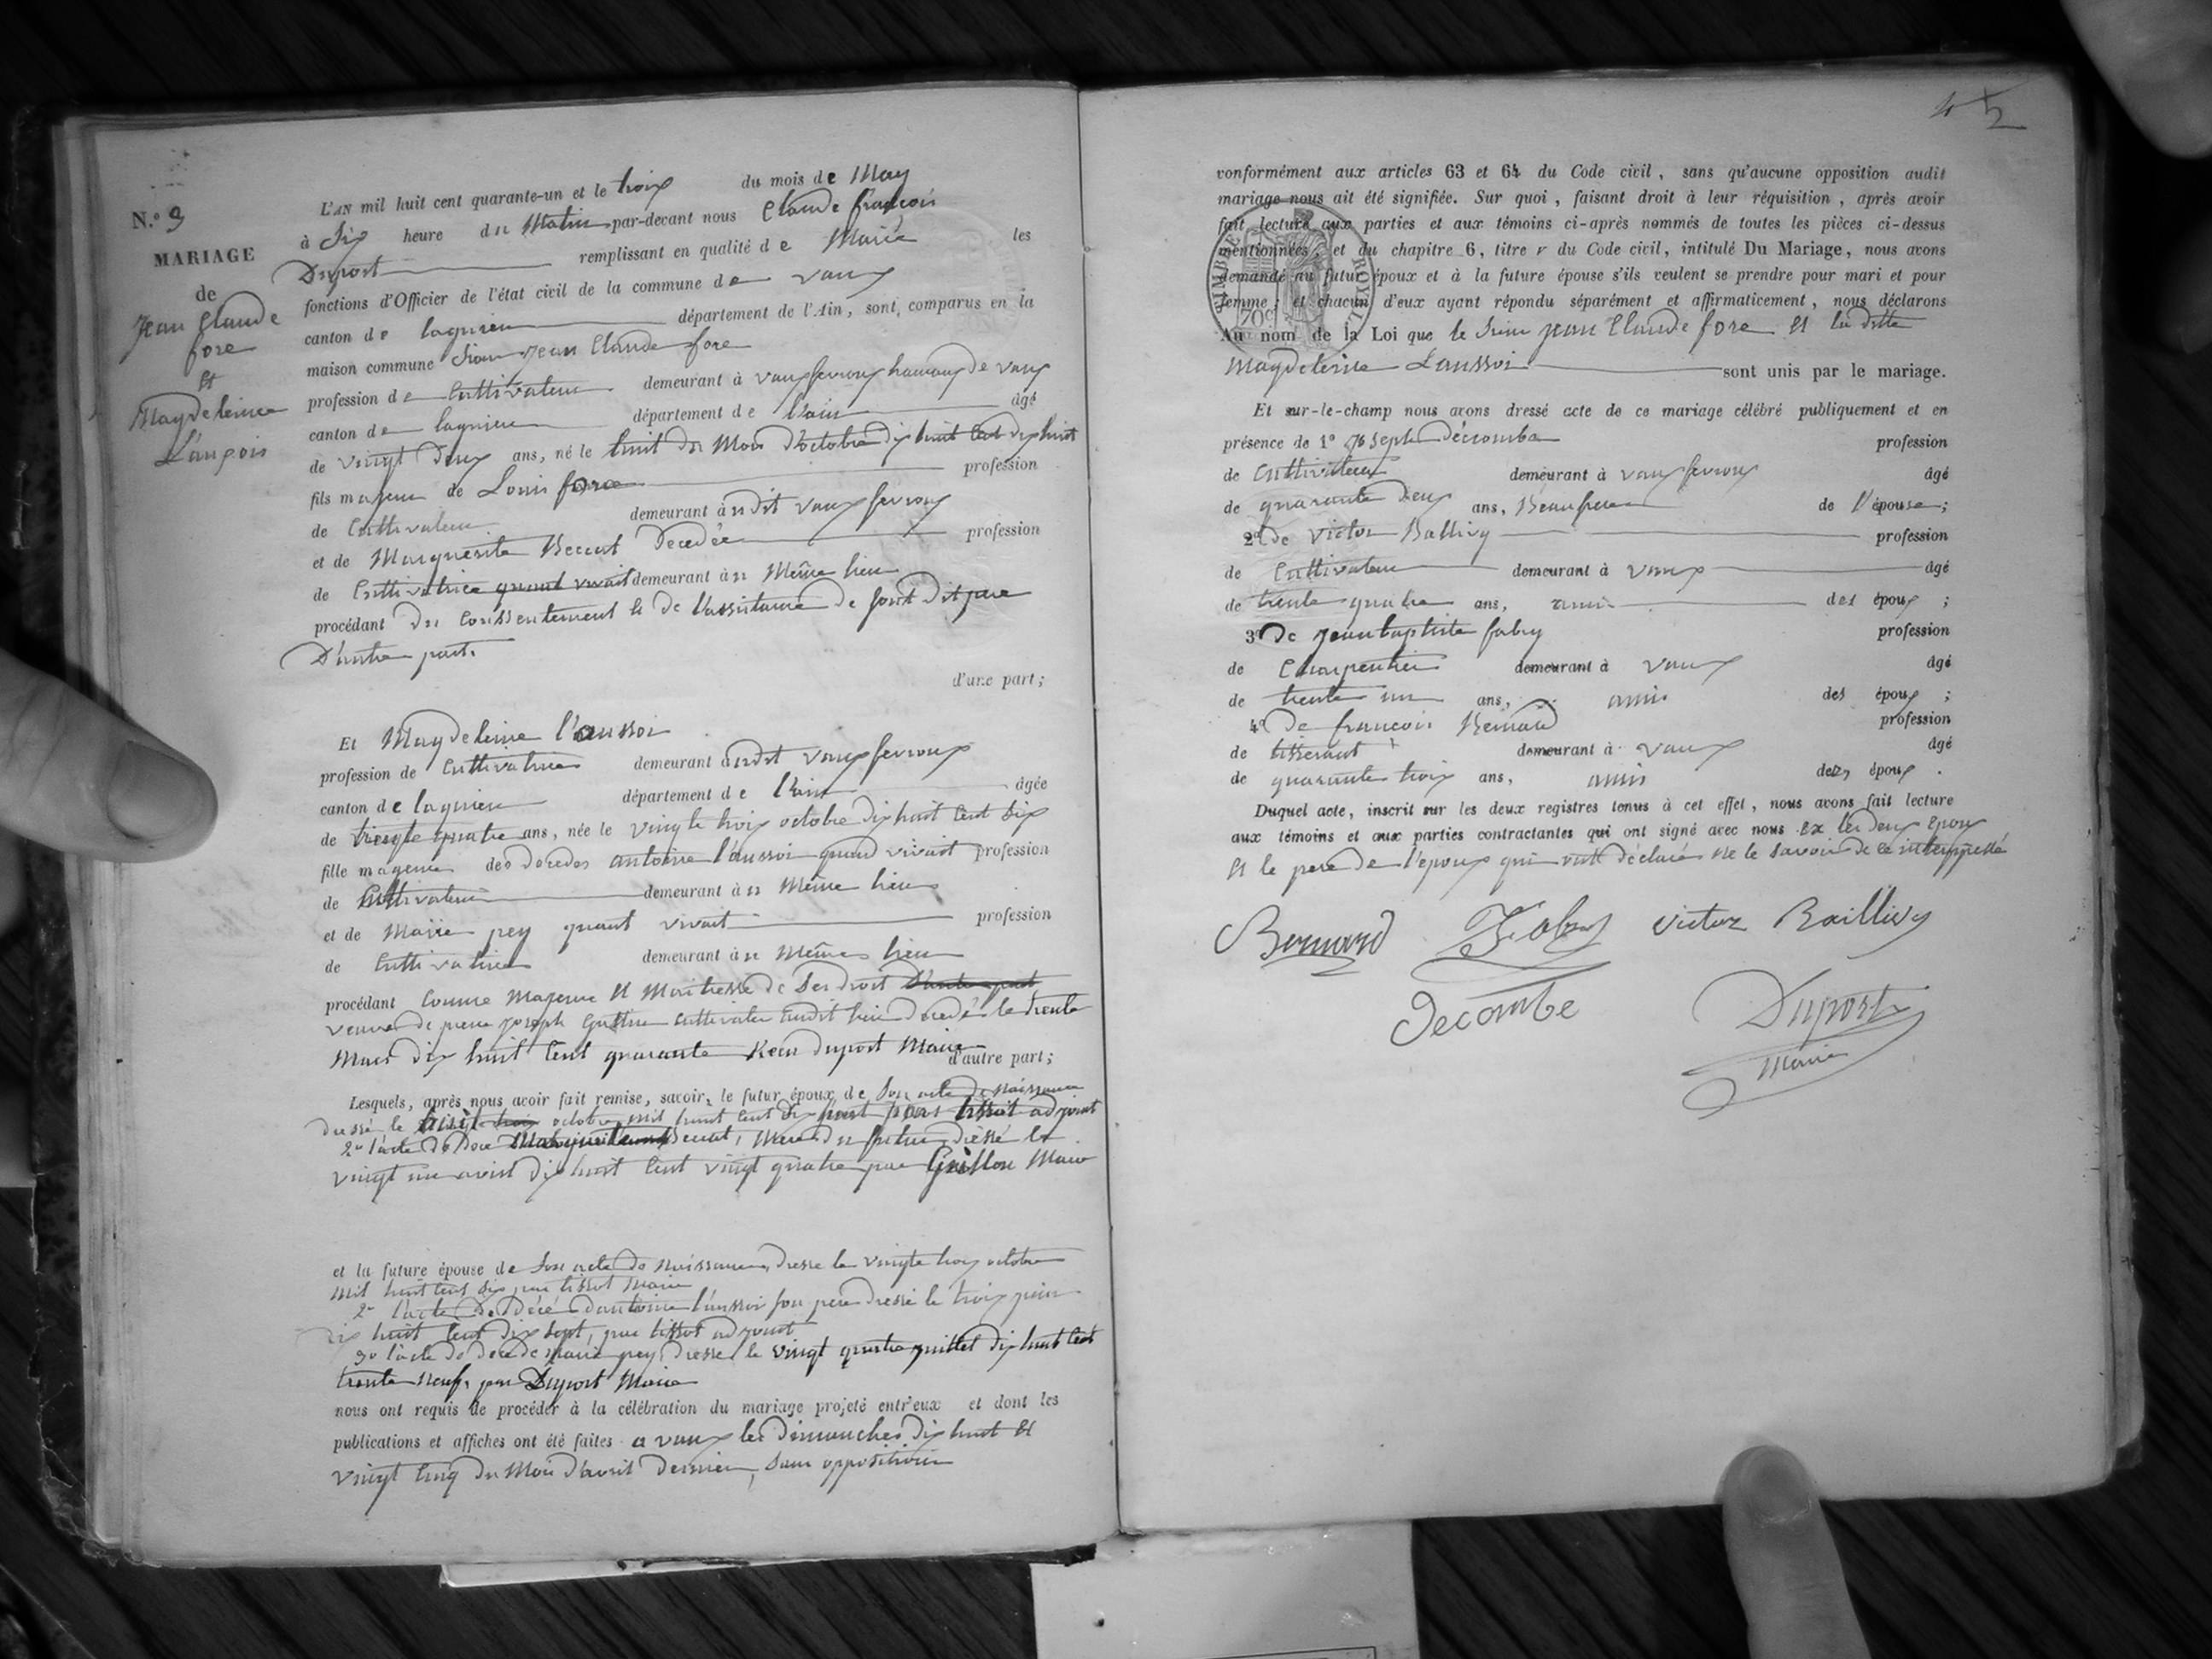 N.º 9
MARIAGE
de
Jean Claude
fore
et
Magdeleine
L'anssois
L'AN mil huit cent quarante-un et le trois du mois de May
à Six heure du Matin par-devant nous Claude françois
Duport remplissant en qualité de Maire les
fonctions d'Officier de l'état civil de la commune de vaux
canton de lagnieu département de l'Ain, sont comparus en la
maison commune Sieur Jean Claude fore
profession de Cultivateur demeurant à vaux fevroux hamaux de vaux
canton de lagnieu département de l'ain âgé
de vingt deux ans, né le huit du Mois d'octobre dix huit cent dix huit
fils majeur de Louis fore profession
de Cultivateur demeurant à udit vaux fevroux
et de Marguerite Decedée profession
de Cultivatrice quand vivait demeurant à u Même lieu
procédant du Consentement et de l'assistance de sont dit pere
D'autre part.
d'une part;
Et Magdeleine l'aussoi
profession de Cultivatrice demeurant audit vaux fevroux
canton de lagnieu département de l'ain âgée
de trente quatre ans, née le vingte trois octobre dix huit cent six
fille mageure des decedes antoine l'aussoi quand vivait profession
de Cultivateur demeurant à u Même lieu
et de Marie pey quant vivait profession
de Cultivatrice demeurant à u Même lieu
procédant Comme Mageure et Maitresse de Ses droit D'autre part
veuve de pierre joseph Cultivateur audit lieu decedé le trente
Mars dix huit cent quarante Recu duport Maire d'autre part;
Lesquels, après nous avoir fait remise, savoir, le futur époux de Son acte de Naissance
dressé le huit octobre mil huit cent dix huit par tissot adjoint
2º l'acte de Mere du futur dressé le
vingt un avril dix huit cent vingt quatre par Guillon Maire
et la future épouse de Son acte de Naissance, dressé le vingte trois octobre
mil huit cent six par tissot Maire
2º l'acte de Décé d'antoine l'aussoi son pere dressé le trois juin
dix huit cent dix sept, par tissot adjoint
3º l'acte de decé de Marie pey dressé le vingt quatre juillet dix huit cent
trente neuf, par Duport Maire
nous ont requis de procéder à la célébration du mariage projeté entr'eux et dont les
publications et affiches ont été faites a vaux les Dimanches dix huit et
vingt cinq du Mois d'avril dernier, sans opposition
conformément aux articles 63 et 64 du Code civil, sans qu'aucune opposition audit
mariage nous ait été signifiée. Sur quoi, faisant droit à leur réquisition, après avoir
fait lecture aux parties et aux témoins ci-après nommés de toutes les pièces ci-dessus
mentionnées, et du chapitre 6, titre v du Code civil, intitulé Du Mariage, nous avons
demandé au futur époux et à la future épouse s'ils veulent se prendre pour mari et pour
femme; et chacun d'eux ayant répondu séparément et affirmativement, nous déclarons
Au nom de la Loi que le Sieur Jean Claude fore et la ditte
Magdeleine Laussoi sont unis par le mariage.
TIMBRE ROYAL
70c
Et sur-le-champ nous avons dressé acte de ce mariage célébré publiquement et en
présence de 1º joseph décombe profession
de Cultivateur demeurant à vaux fevroux âgé
de quarante deux ans, Beaufrere de l'épouse;
2º de victor Ballivy profession
de Cultivateur demeurant à vaux âgé
de trente quatre ans, amis des époux;
3º de jean baptiste fabry profession
de Charpentier demeurant à vaux âgé
de trente un ans, amis des époux;
4º de francois Bernard profession
de tisserant demeurant à vaux âgé
de quarante trois ans, amis des époux.
Duquel acte, inscrit sur les deux registres tenus à cet effet, nous avons fait lecture
aux témoins et aux parties contractantes qui ont signé avec nous les deux epoux
et le pere de l'epoux qui ont déclarés ne le savoir de ce interpellé
Bernard Fabry victor Baillivy
Decombe Duport
Maire